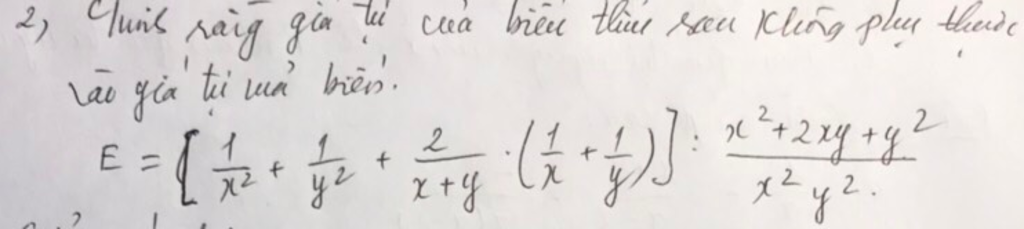 2, Chứng rằng giá trị của biểu thức sau không phụ thuộc
vào giá trị của biến.
E = [ 1/x² + 1/y² + 2/(x+y) · (1/x + 1/y) ] : (x² + 2xy + y²)/(x² y²).